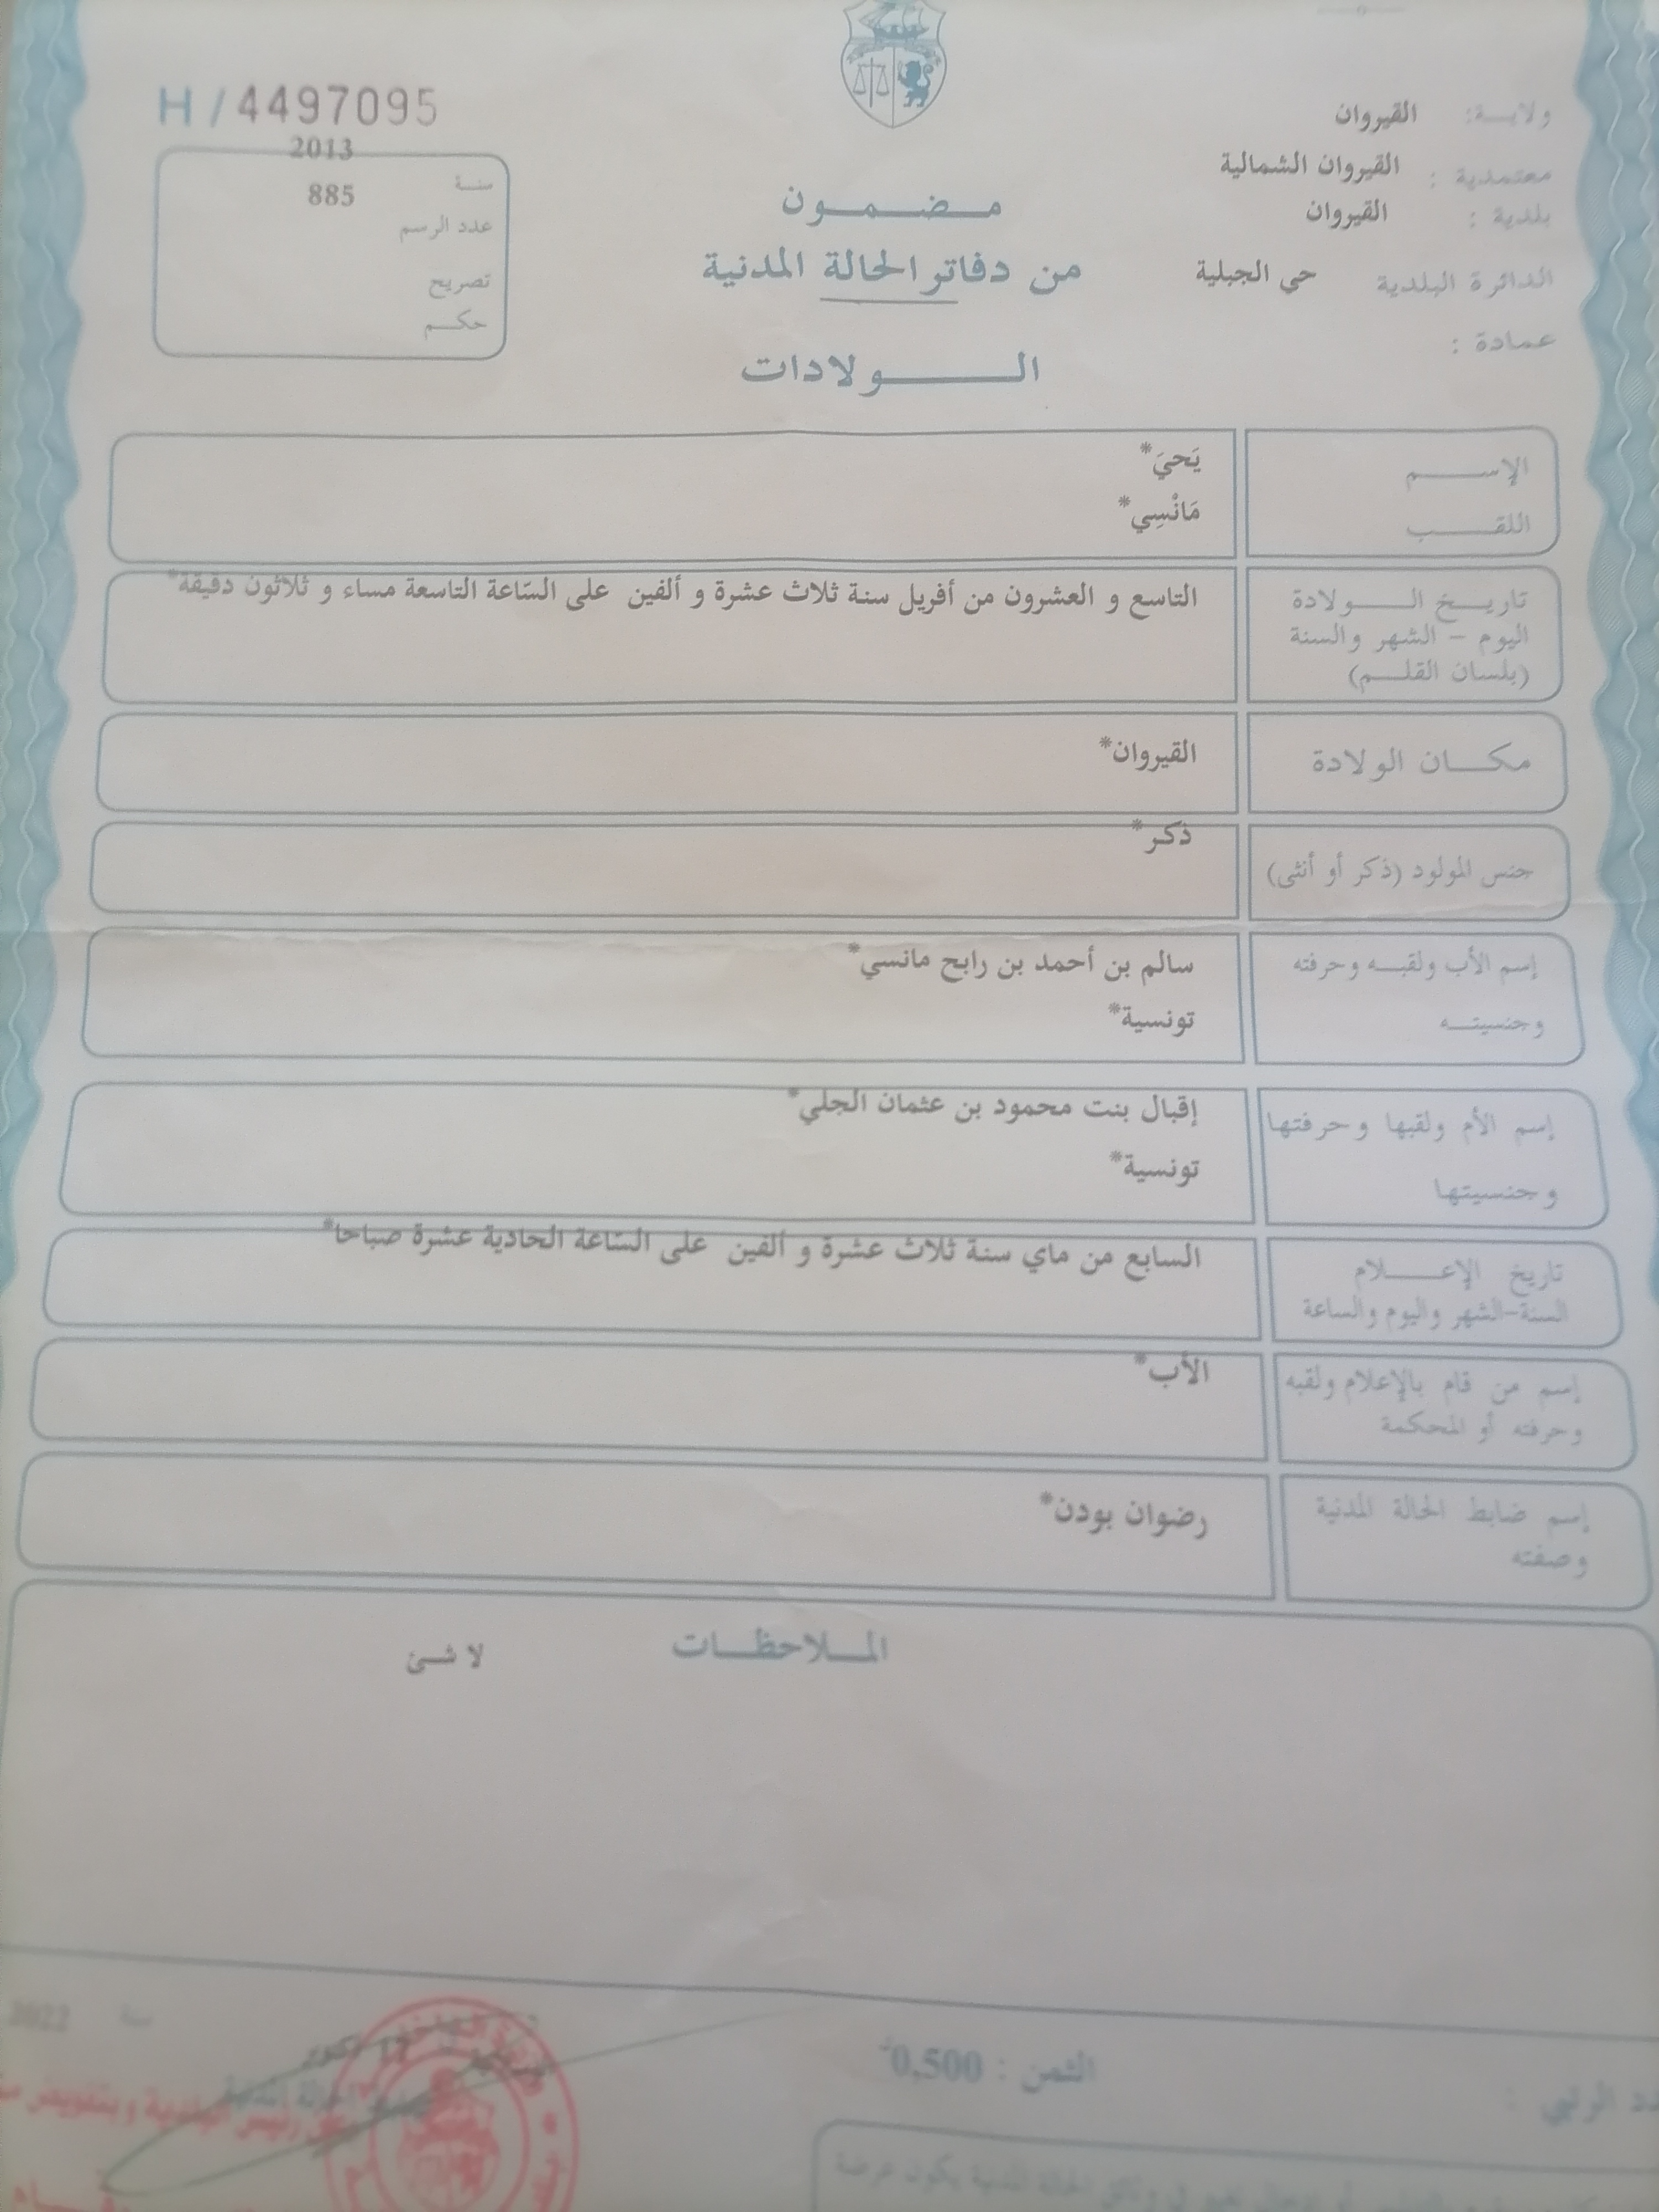 H / 4497095
2013
سنة
885
عدد الرسم
تصريح
حكم
ولاية: القيروان
معتمدية : القيروان الشمالية
بلدية : القيروان
الدائرة البلدية حي الجبلية
عمادة :
مضمون
من دفاتر الحالة المدنية
الولادات
الإسم يَحيَ*
اللقب مَانْسِي*
تاريخ الولادة التاسع و العشرون من أفريل سنة ثلاث عشرة و ألفين على السّاعة التاسعة مساء و ثلاثون دقيقة*
اليوم - الشهر والسنة
(بلسان القلم)
مكان الولادة القيروان*
جنس المولود (ذكر أو أنثى) ذكر*
إسم الأب ولقبه وحرفته سالم بن أحمد بن رابح مانسي*
وجنسيته تونسية*
إسم الأم ولقبها وحرفتها إقبال بنت محمود بن عثمان الجلي*
وجنسيتها تونسية*
تاريخ الإعلام السابع من ماي سنة ثلاث عشرة و ألفين على السّاعة الحادية عشرة صباحا*
السنة-الشهر واليوم والساعة
إسم من قام بالإعلام ولقبه الأب*
وحرفته أو المحكمة
إسم ضابط الحالة المدنية رضوان بودن*
وصفته
الملاحظات لا شئ
سنة 2022
الثمن : 0,500
الحالة المدنية يكون عرضة